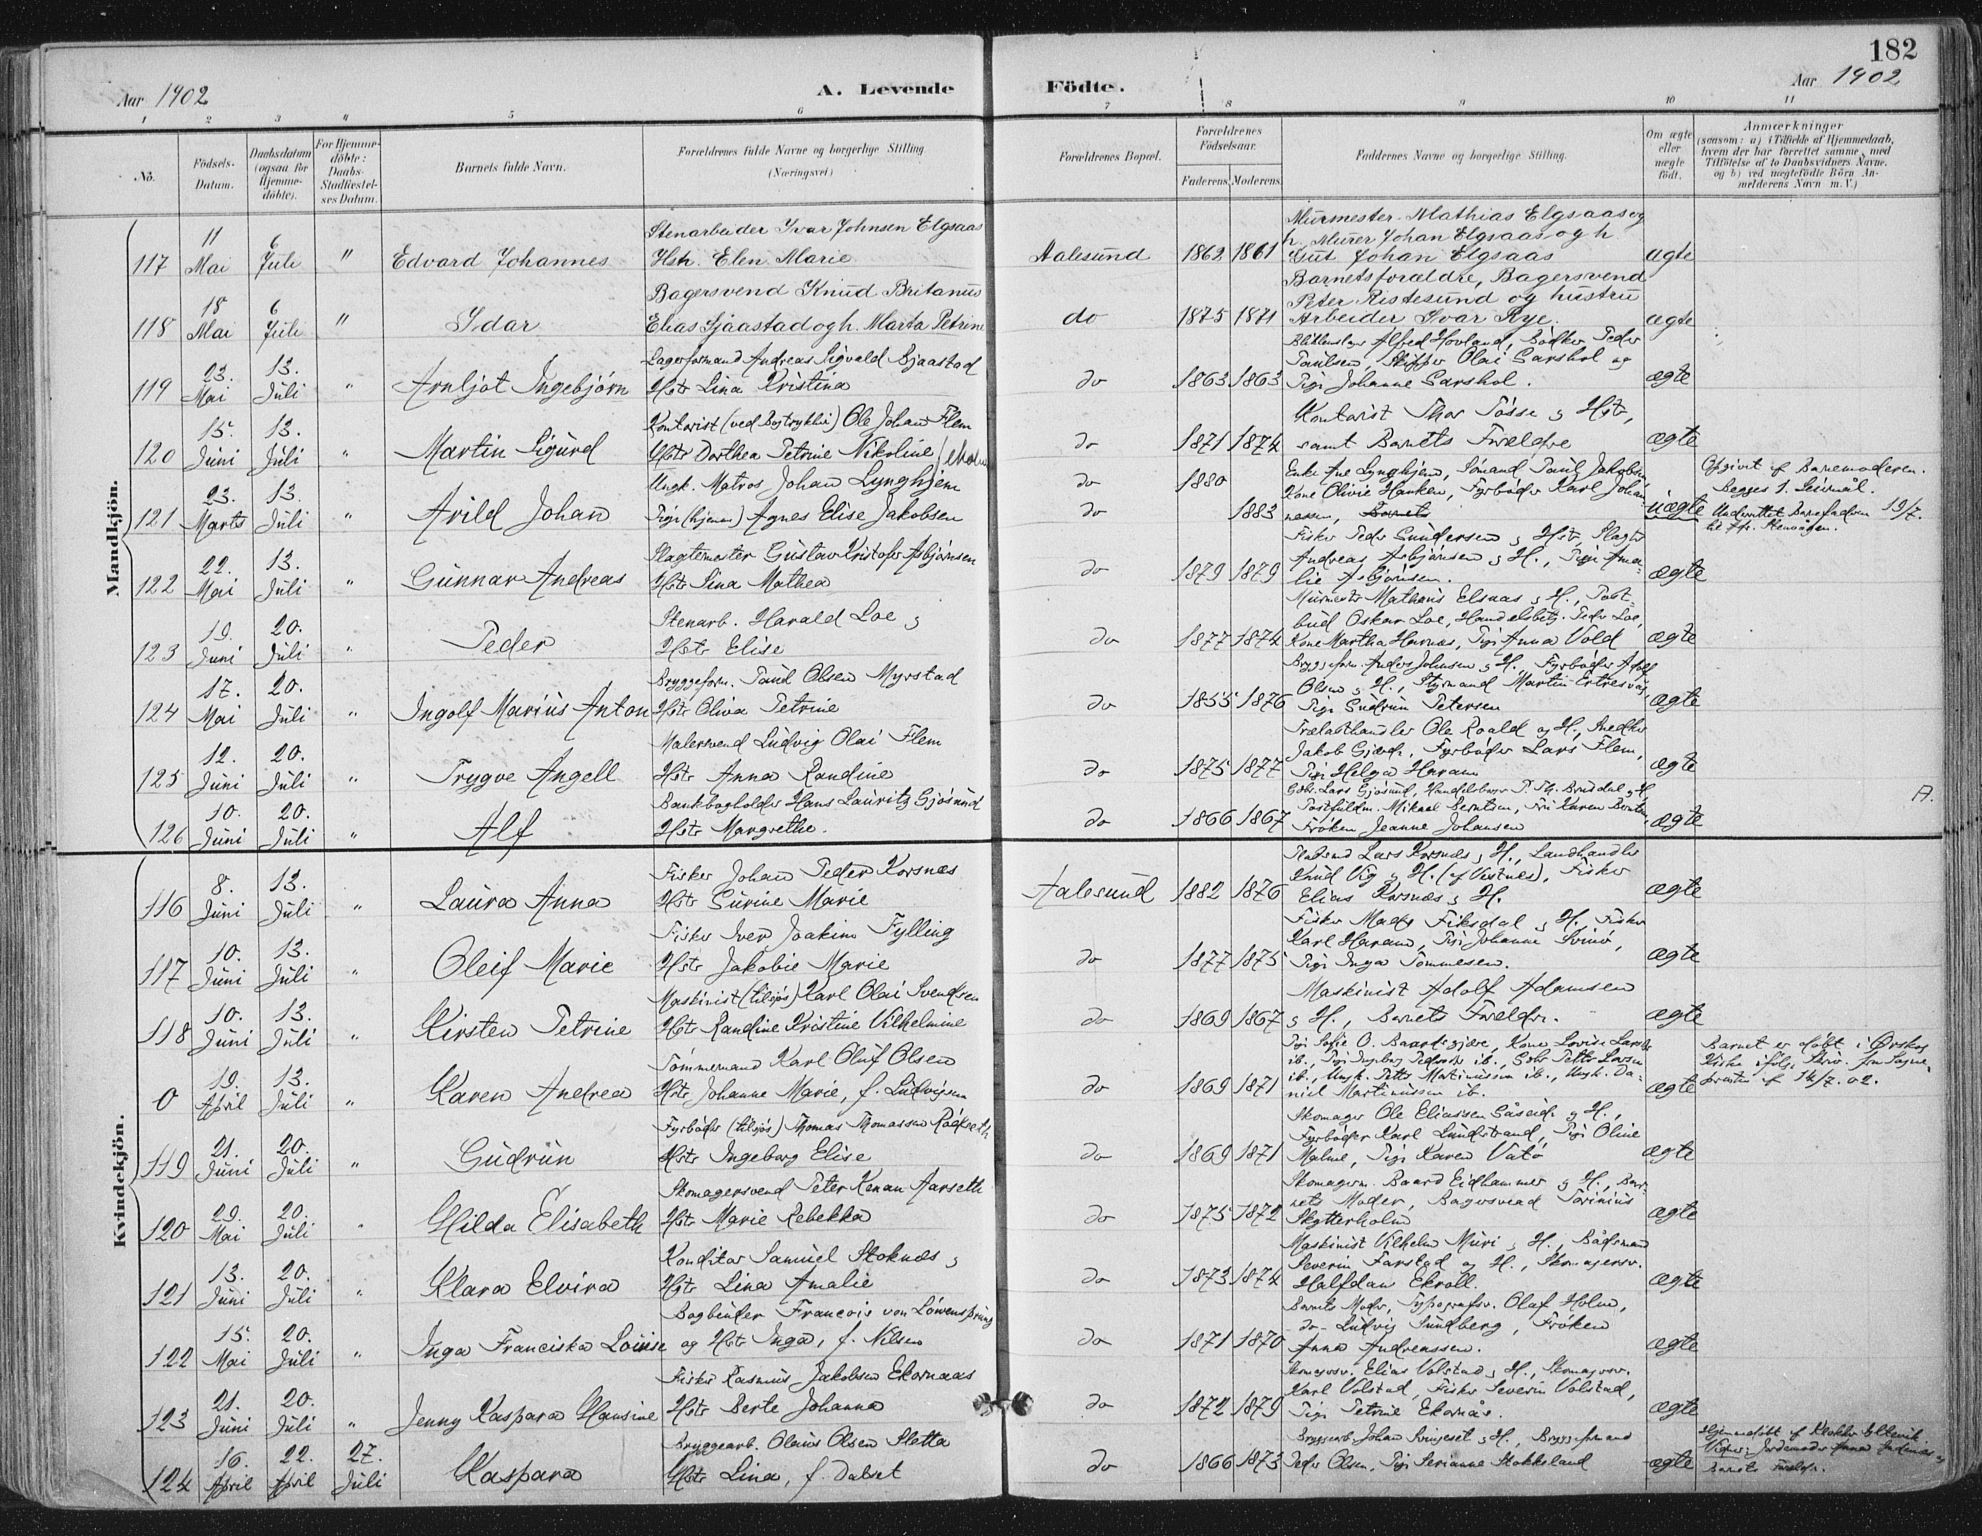 182
Aar 1902
A. Levende
Födte.
Aar 1902
1 2 3 4 5 6 7 8 9 10 11
No.
Födsels-
Datum.
Daabsdatum
(ogsaa for
Hjemme-
döbte).
For Hjemme-
döbte:
Daabs-
Stadfæstel-
ses Datum.
Barnets fulde Navn.
Forældrenes fulde Navne og borgerlige Stilling
(Næringsvei)
Forældrenes Bopæl.
Forældrenes
Födselsaar.
Faderens. Moderens.
Faddernes Navne og borgerlige Stilling.
Om ægte
eller
uægte
födt.
Anmærkninger
(saasom: a) i Tilfælde af Hjemmedaab,
hvem der har forrettet samme, med
Tilföielse af to Daabsvidners Navne,
og b) ved uægtefödte Börn An-
melderens Navn m. V.)
Mandkjön.
117 11 Mai 6 Juli " Edvard Johannes
Stenarbeider Ivar Johnsen Elgsaas
Hstr. Elen Marie
Aalesund 1862 1861
Murmester Mathias Elgsaas og
h. Murer Johan Elgsaas og h.
Gut Johan Elgsaas
ægte
118 18 Mai 6 Juli " Idar
Bagersvend Knud Britanus
Elias Sjaastad og h. Marta Petrine
do 1875 1871
Barnets forældre, Bagersvend
Peter Ristesund og hustru
Arbeider Ivar Rye.
ægte
119 23. Mai 13. Juli " Arnljot Ingebjørn
Lagerformand Andreas Sigvald Bjaastad
Hstr Lina Kristina
do 1863 1863
Alfred Hovland, Bødker Peder
Paulsen, Skipper Olai Garshol og
Pige Johanne Garshol.
ægte
120 15. Juni 13. Juli " Martin Sigurd
Kontorist (ved Bogtrykkeri) Ole Johan Flem
Hstr Dorthea Petrine Nikoline
do 1871 1874
Kontorist Thor Tøsse & Hstr,
samt Barnets Forældre
ægte
121 23. Marts 13. Juli " Arild Johan
Ungk. Matros Johan Lynghjem
Pige (hjemme) Agnes Elise Jakobsen
do 1880
do 1883
Enke Ane Lynghjem, Sømand Paul Jakobsen,
Kone Olivie Hanken, Fyrbøder Karl Johan
nessen, Barnets
uægte
Opgivet af Barnemoderen.
Begges 1. Leiermål.
Underrettet Barnefaderen 19/7.
122 22. Mai 13. Juli " Gunnar Andreas
Slagtemester Gustav Kristofer Asbjørnsen
Hstr Lina Mathea
do 1879 1879
Fisker Peder Gundersen & Hstr, Slagter
Andreas Asbjørnsen & H., Pige Ama-
lie Asbjørnsen.
ægte
123 19. Juni 20. Juli " Peder
Stenarb. Harald Loe &
Hstr Elise
do 1877 1874
Murmester Mathias Elsaas & H., Post-
bud Oskar Loe, Handelsbetj. Peder Loe,
Kone Martha Harnæs, Pige Anna Vold
ægte
124 17. Mai 20. Juli " Ingolf Marius Anton
Bryggeform. Paul Olsen Myrstad
Hstr Oliva Petrine
do 1855 1876
Bryggeform. Anders Johnsen & H., Fyrbøder Adolf
Olsen & H., Styrmand Martin Ertresvåg,
Pige Gudrun Petersen
ægte
125 12. Juni 20. Juli " Trygve Angell
Malersvend Ludvig Olai Flem
Hstr Anna Randine
do 1875 1877
Trælasthandler Ole Roald og H., Snedker
Jakob Gjerde, Fyrbøder Lars Flem,
Pige Helga Haram
ægte
126 10. Juni 20. Juli " Alf
Bankbogholder Hans Lauritz Gjøsund
Hstr Margrethe.
do 1866 1867
Gbr. Lars Gjøsund, Brusdal & H,
Postfuldm. Mikael Berntsen, Frk Karen Berntsen,
Frøken Jeanne Johansen
ægte
A.
Kvindekjön.
116 8. Juni 13. Juli " Laura Anna
Fisker Johan Peder Korsnæs
Hstr Gurine Marie
Aalesund 1882 1876
Lars Korsnæs & H., Landhandler
Knud Vig & H. (af Vestnes), Fisker
Elias Korsnæs & H.
ægte
117 10. Juni 13. Juli " Oleif Marie
Fisker Iver Joakim Fylling
Hstr Jakobie Marie
do 1877 1875
Fisker Mads Fiksdal & H. Fisker
Karl Haram, Pige Johanne Svinø,
Pige Inga Tommesen.
ægte
118 10. Juni 13. Juli " Kirsten Petrine
Maskinist (tilsjøs) Karl Olai Svendsen
Hstr Randine Kristine Vilhelmine
do 1869 1867
Maskinist Adolf Adamsen
& H., Barnets Forældre.
ægte
0 19. April 13. Juli " Karen Andrea
Tømmermand Karl Oluf Olsen
Hstr Johanne Marie, f. Ludvigsen
do 1869 1871
Pige Sofie O. Baardsgjære, Kone Lovise Larsen
ib., Pige Ingeborg Pedersen ib., Gbr. Petter Larsen
ib., Ungk. Petter Martinussen ib., Ungk. Da-
niel Martinussen ib.
ægte
Barnet er døbt i Ørskog
Kirke ifølge Skriv. fra Sogne-
presten af 14/7. 02.
119 21. Juni 20. Juli " Gudrun
Fyrbøder (tilsjøs) Thomas Thomassen Rødseth
Hstr Ingeborg Elise
do 1869 1871
Skomager Ole Eliassen Gåseide & H.,
Fyrbøder Karl Lundstrand, Pige Oline
Malme, Pige Karen Vatø
ægte
120 29. Mai 20. Juli " Hilda Elisabeth
Skomagersvend Peter Kenan Aarseth
Hstr Marie Rebekka
do 1875 1872
Skomagerm. Baard Eidhammer & H., Bar-
nets Moder, Bagersvend Torinius
Skytterholm
ægte
121 13. Juni 20. Juli " Klara Elvira
Konditor Samuel Stoknæs &
Hstr Lina Amalie
do 1873 1874
Maskinist Vilhelm Muri & H., Bådsmand
Severin Farstad og H., Skomagersv.
Halfdan Ekroll.
ægte
122 15. Mai 20. Juli " Inga Franciska Louise
Bogbinder Francois von Löwensprung
og Hstr Inga, f. Nilsen
do 1871 1870
Barnets Moder, Typografsv. Olaf Holm,
-do- Ludvig Sundberg, Frøken
Anna Andreassen.
ægte
123 21. Juni 20. Juli " Jenny Kaspara Hansine
Fisker Rasmus Jakobsen Ekornaas
Hstr Berte Johanna
do 1872 1879
Skomagersv. Elias Volstad & H., Skomagersv.
Karl Volstad, Fisker Severin Volstad,
Pige Petrine Ekornås.
ægte
124 16. April 22. April 27. Juli Kaspara
Bryggearb. Olaus Olsen Sletta
Hstr Lina, f. Dalset
do 1866 1873
Bryggearb. Johan Svinset & H., Bryggeformand
Peder Olsen, Pige Serianne Stokkeland
ægte
Hjemmedøbt af Klokker Ellevik
Vidner: Jordemoder Anna
Barnets Forældre.